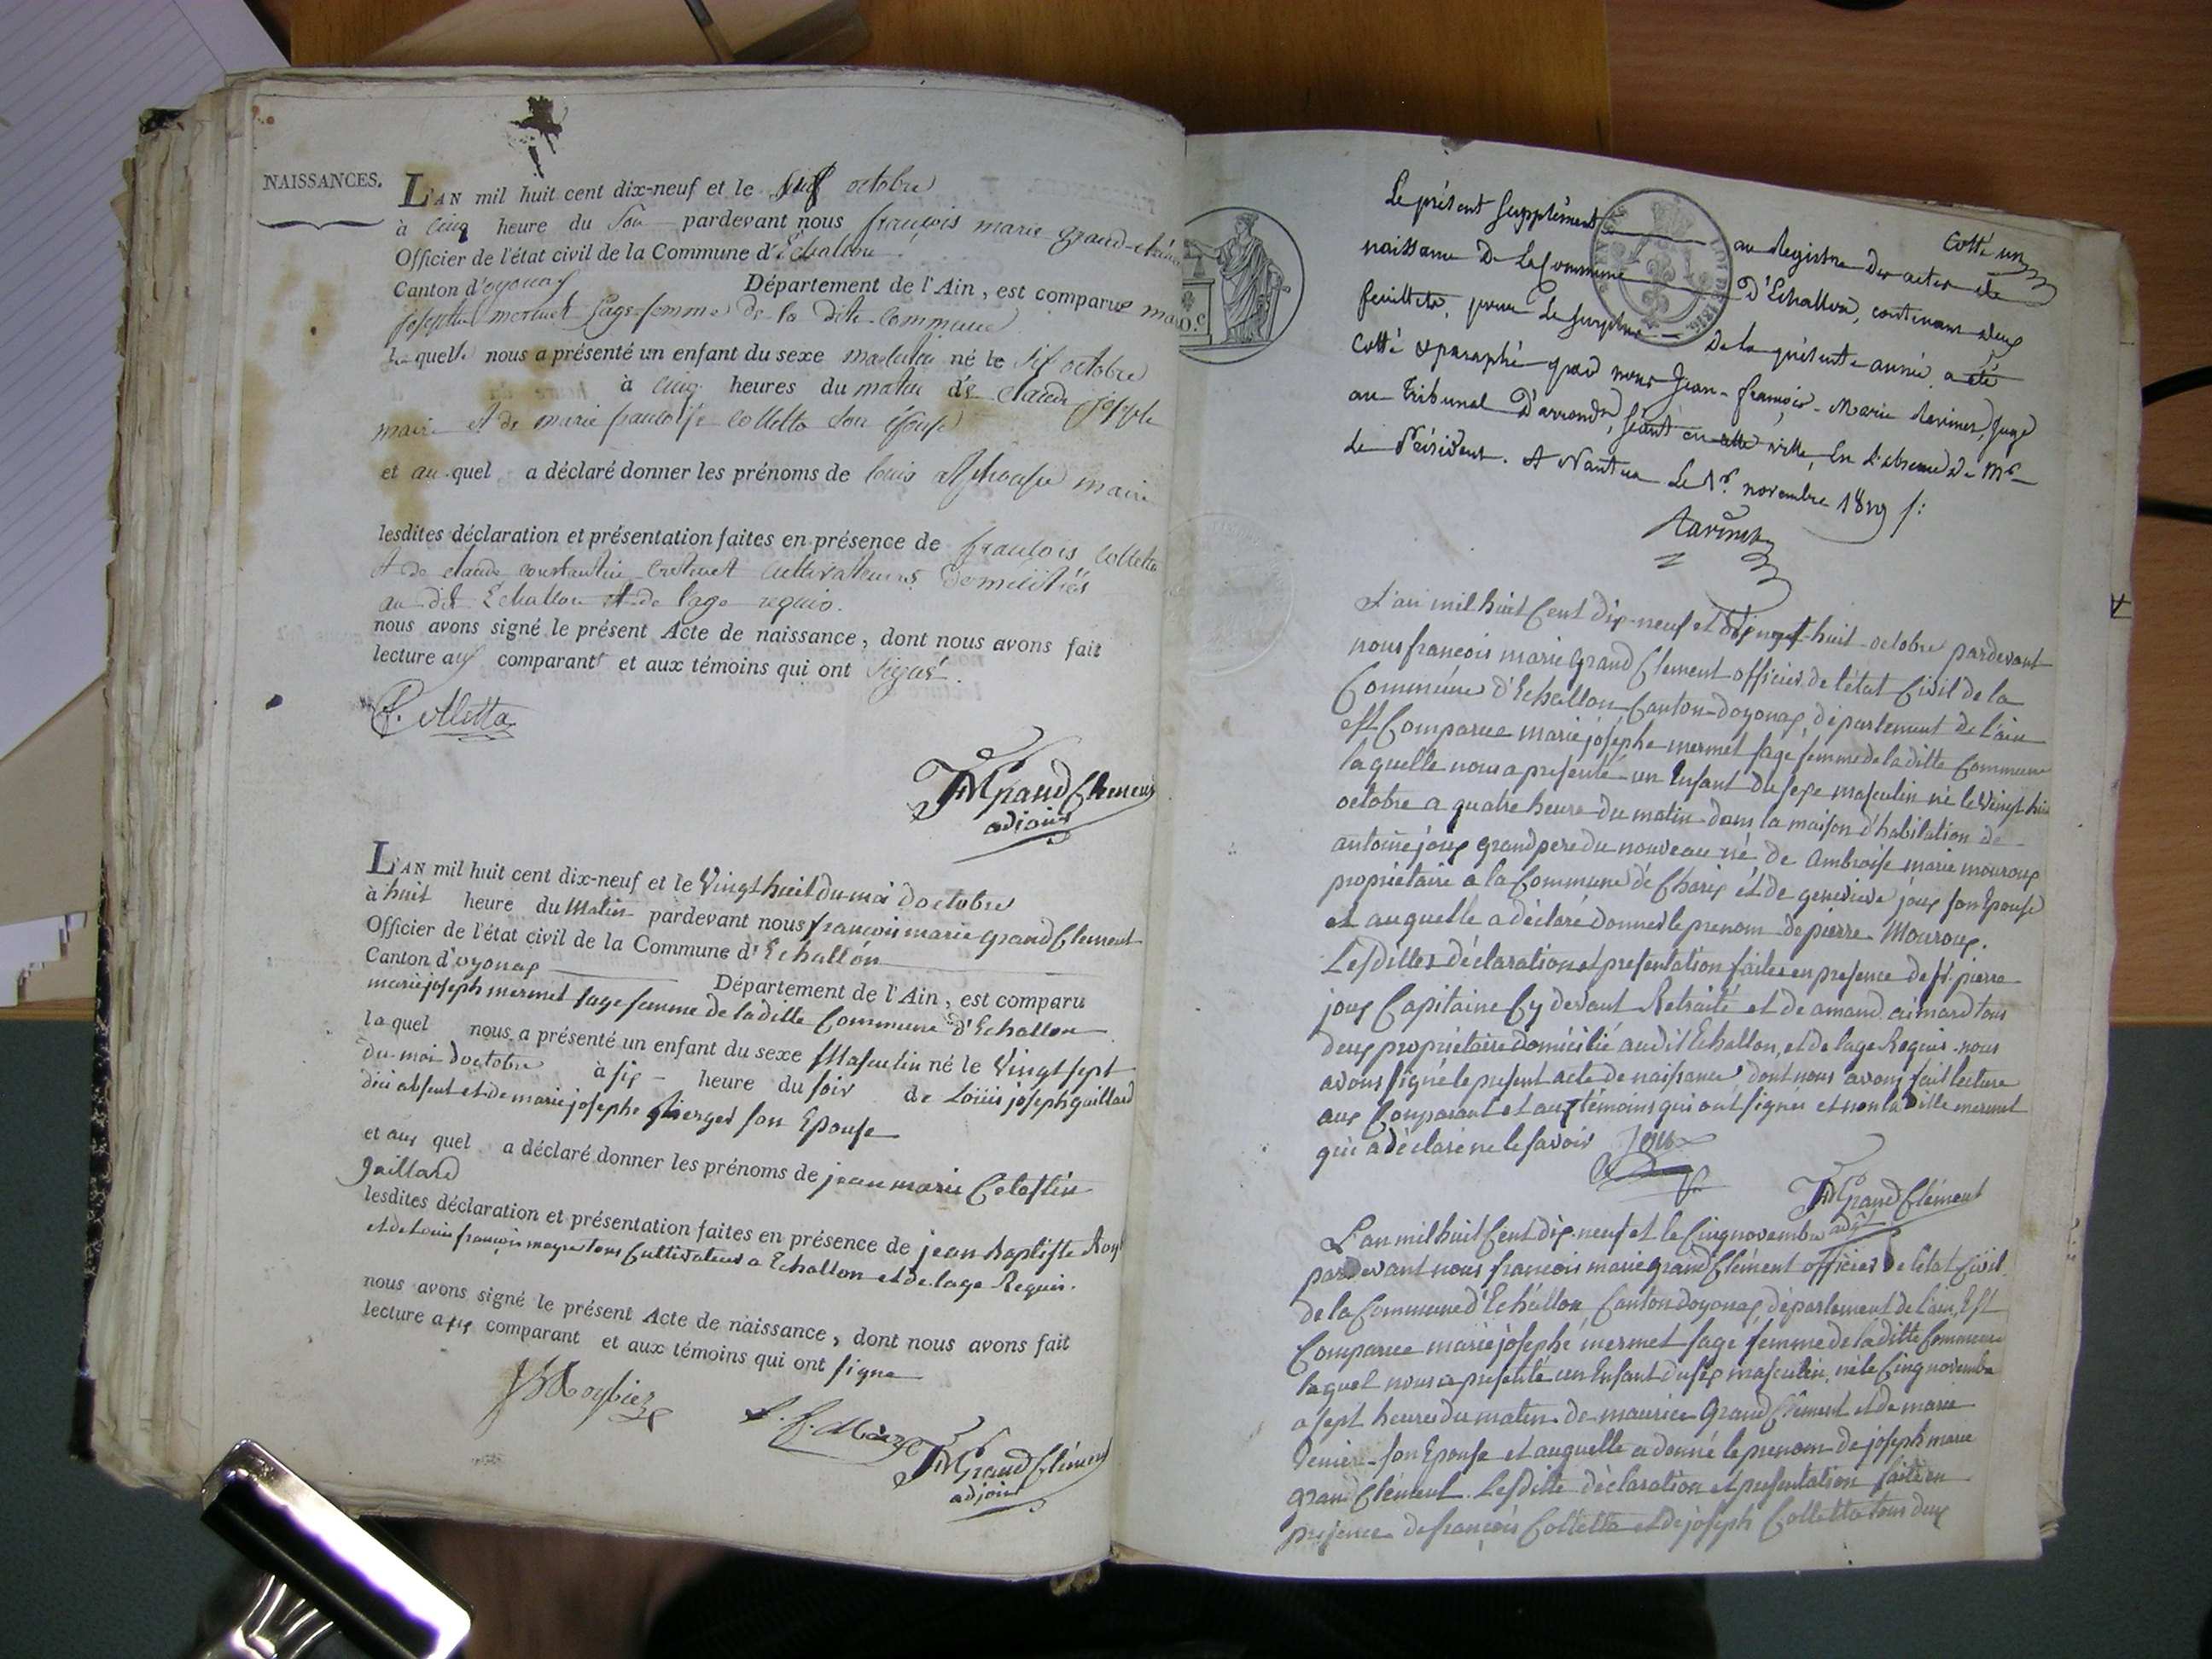 NAISSANCES.
L'AN mil huit cent dix-neuf et le six octobre
à cinq heure du soir pardevant nous françois marie grand-clément
Officier de l'état civil de la Commune d'Echallon
Canton d'oyonax Département de l'Ain, est comparue marie
josephte mermet sage-femme de la dite commune
laquelle nous a présenté un enfant du sexe masculin né le six octobre
à cinq heures du matin de claude joseph
maire et de marie françoise colletta son épouse
et au quel a déclaré donner les prénoms de louis alphonse maire
lesdites déclaration et présentation faites en présence de françois colletta
et de claude constantin cultivateurs domiciliés
au dit Echallon et de l'age requis.
nous avons signé le présent Acte de naissance, dont nous avons fait
lecture aux comparants et aux témoins qui ont signés.
f. colletta
FM Grand Clement
adjoint
L'AN mil huit cent dix-neuf et le Vingt huit du moi doctobre
à huit heure du Matin pardevant nous françois marie grand Clement
Officier de l'état civil de la Commune d'Echallon
Canton d'oyonax Département de l'Ain, est comparu
marie joseph mermet sage femme de la ditte Commune d'Echallon
laquel nous a présenté un enfant du sexe Masculin né le Vingt sept
du moi doctobre à six heure du soir de Loüis joseph gaillard
dici absent et de marie josephe son Epouse
et aux quel a déclaré donner les prénoms de jean marie Celestin
gaillard
lesdites déclaration et présentation faites en présence de jean baptiste Roy
et de Louis françois tous Cultivateur a Echallon et de lage Requis.
nous avons signé le présent Acte de naissance, dont nous avons fait
lecture aux comparant et aux témoins qui ont signe
FM Grand Clément
adjoint
Cotté un
Le présent supplément au Registre des actes de
naissance de la Commune d'Echallon, contenant deux
feuillets, pour le surplus de la présente année a été
Cotté & paraphé par nous Jean-françois-Marie Ravinet, Juge
au Tribunal d'arrondt, séant en cette ville, En l'absence de Mr
le Président. A Nantua Le 1r. novembre 1819 /:
Ravinet
L'an mil huit Cent dix-neuf et vingt-huit octobre pardevant
nous francois marie Grand Clement officier de l'état Civil de la
Commune d'Echallon Canton doyonax, département de l'ain
est Comparue marie joséphe mermet sage femme de la ditte Commune
laquelle nous a presenté un Enfant du sexe masculin né le Vingt huit
octobre a quatre heure du matin dans la maison d'habitation de
antoine joux grand pere du nouveau né, de Ambroise marie mouroux
propriétaire a la Commune de Charix et de genevieve joux son Epouse
et auquelle a déclaré donner le prenom de pierre Mouroux.
Lesdittes déclaration et presentation faites en presence de sr. pierre
joux Capitaine Cy devant Retraité et de amand aimard tous
deux propriétaire domicilié audit Echallon, et de lage Requis nous
avons signé le present acte de naissance dont nous avons fait lecture
aux Comparant et aux témoins qui ont signer et non la ditte mermet
qui a déclaré ne le savoir Joux
FM Grand Clément
adjt
L'an mil huit Cent dix-neuf et le Cinq novembre
pardevant nous francois marie grand Clément officier de létat Civil
de la Commune d'Echallon, Canton doyonax, département de lain, Est
Comparue marie josephe mermet sage femme de la ditte Commune
laquel nous a presenté un Enfant du sex masculin, né le Cinq novembre
a sept heures du matin de maurice Grand Clément et de marie
son Epouse et auquelle a donné le prenom de joseph marie
grand Clément. Lesditte déclaration et presentation faite en
presence de françois Colletta et de joseph Colletta tous deux